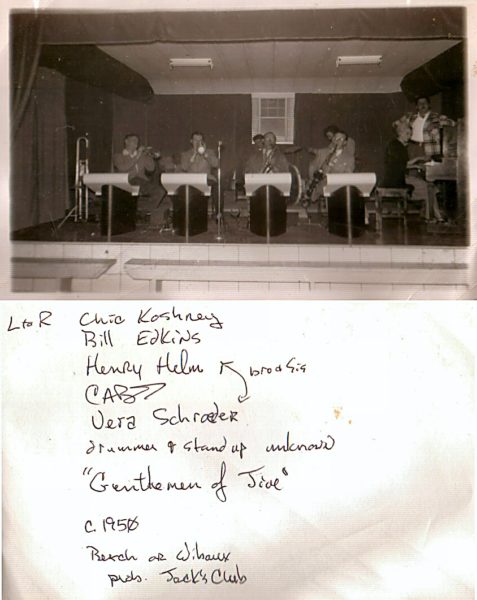 L to R Chic Koshney
Bill Edkins
Henry Helm bro & sis
CAB
Vera Schrader
drummer & stand up unknown
"Gentlemen of Jive"
c. 1950
Beach or Wibaux
prob. Jack's Club